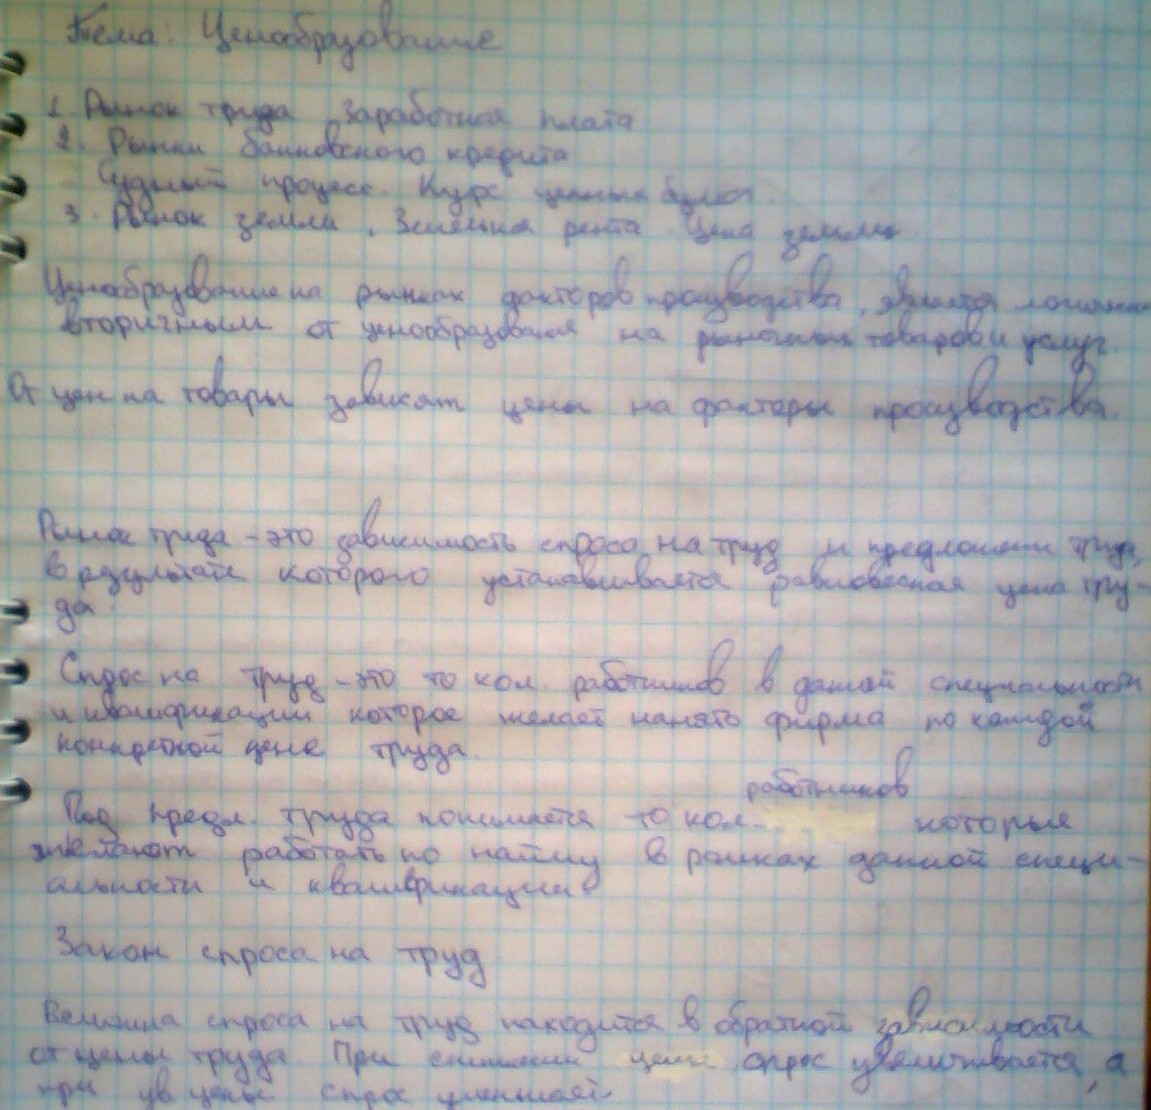 Тема: Ценообразование
1. Рынок труда. Заработная плата
2. Рынки банковского кредита
Судный процесс. Курс ценных бумаг.
3. Рынок земли. Земельная рента. Цена земли.
Ценообразование на рынках факторов производства, является
вторичным от ценообразования на рыночных товаров и услуг.
От цен на товары зависят цены на факторы производства.
Рынок труда - это зависимость спроса на труд и предложения труда,
в результате которого устанавливается равновесная цена тру-
да
Спрос на труд - это то кол. работников в данной специальности
и квалификации которое желает нанять фирма по каждой
конкретной цене труда.
работников
Под предл. труда понимается то кол. которые
желают работать по найму в рамках данной специ-
альности и квалификации
Закон спроса на труд
Величина спроса на труд находится в обратной зависимости
от цены труда. При снижении цены спрос увеличивается, а
при ув цены спрос уменьшает